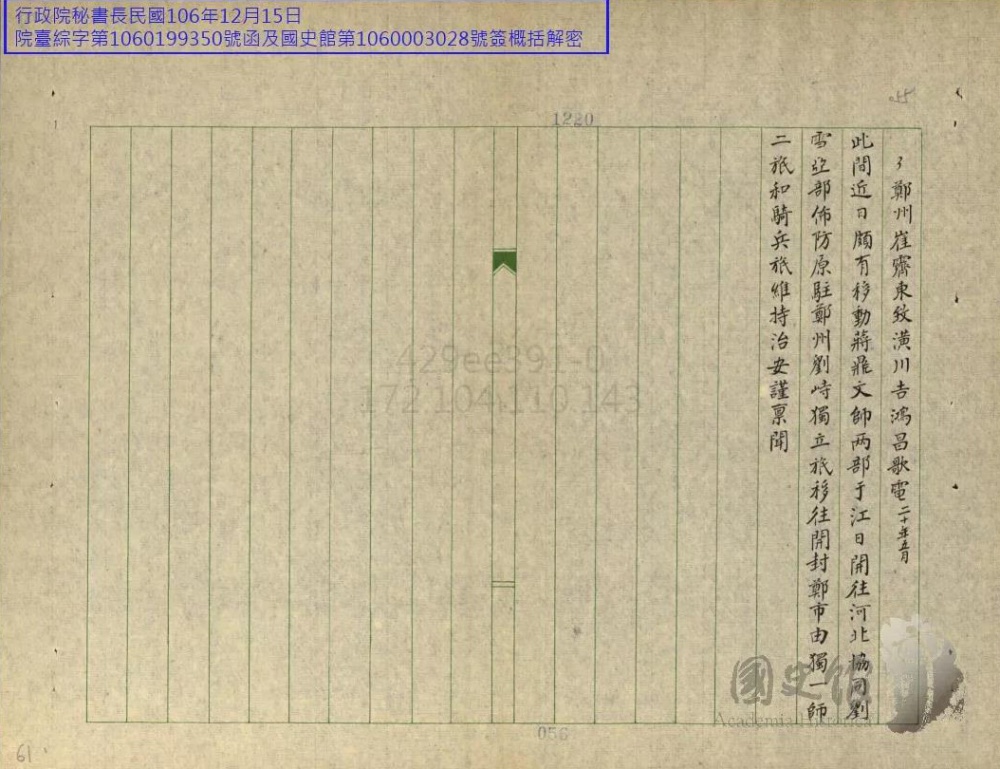 行政院秘書長民國106年12月15日
院臺綜字第1060199350號函及國史館第1060003028號簽概括解密
1220
3鄭州崔齋東致潢川吉鴻昌歌電二十年五月
此間近日頗有移動蔣飛文師兩部于江日開往河北協同劉
雪亞部佈防原駐鄭州劉峙獨立旅移往開封鄭市由獨一師
二旅和騎兵旅維持治安謹禀聞
國史館
Academia Historica
056
61